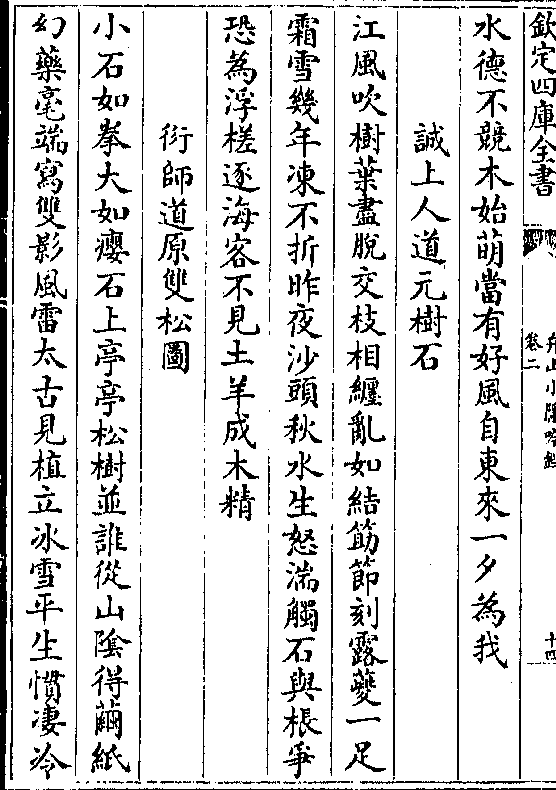 欽定四庫全書
卷二
十四
水德不競木始萌當有好風自東來一夕為我
誠上人道元樹石
江風吹樹葉盡脫交枝相纏亂如結筋節刻露夔一足
霜雪幾年凍不折昨夜沙頭秋水生怒湍觸石與棖爭
恐為浮槎逐海客不見土羊成木精
衍師道原雙松圖
小石如拳大如癭石上亭亭松樹並誰從山陰得繭紙
幻藥毫端寫雙影風雷太古見植立冰雪平生慣淒冷